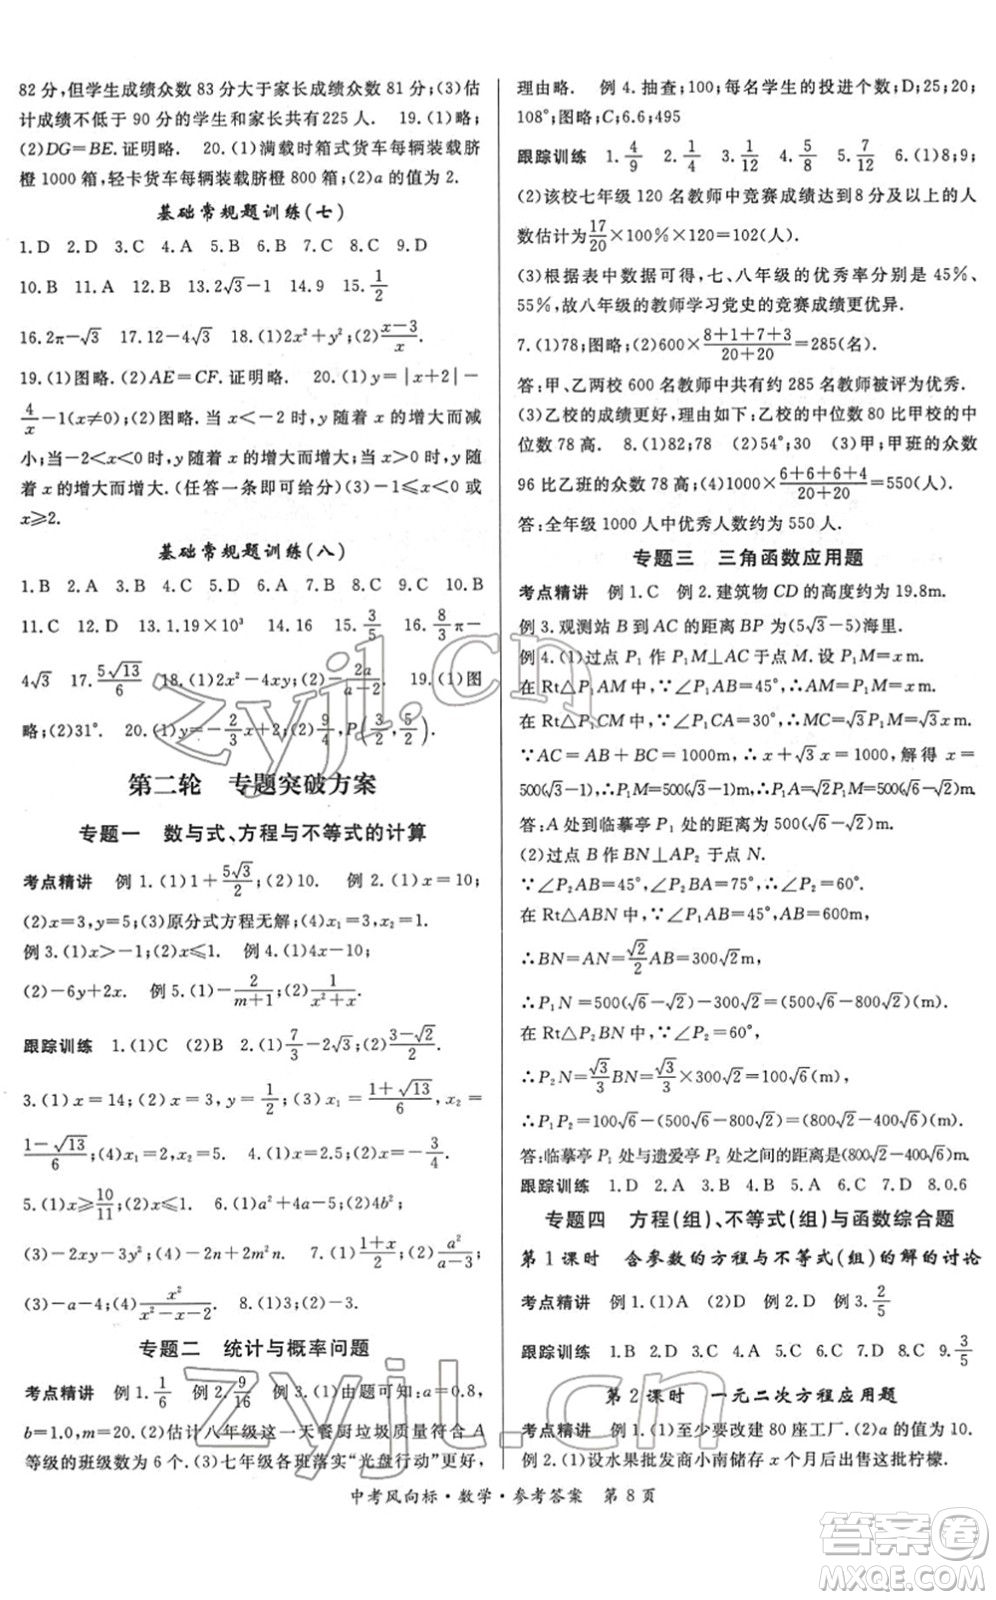 82 分,但学生成绩众数 83 分大于家长成绩众数 81 分;(3)估
计成绩不低于 90 分的学生和家长共有225 人. 19.(1)略;
(2)DG=BE.证明略. 20.(1)满载时箱式货车每辆装载脐
橙 1000 箱,轻卡货车每辆装载脐橙 800 箱;(2)a 的值为 2.
基础常规题训练(七)
1.D 2.D 3.C 4.A 5.B 6.B 7.C 8.C 9.D
10.B 11.A 12.B 13.2√3-1 14.9 15.1/2
16.2π-√3 17.12-4√3 18.(1)2x²+y²;(2)(x-3)/x.
19.(1)图略.(2)AE=CF.证明略. 20.(1)y=|x+2|-
4/x-1(x≠0);(2)图略,当 x<-2 时,y 随着 x 的增大而减
小;当-2<x<0 时,y 随着 x 的增大而增大;当 x>0 时,y
随着 x 的增大而增大.(任答一条即可给分)(3)-1≤x<0 或
x≥2.
基础常规题训练(八)
1.B 2.A 3.D 4.D 5.C 6.B 7.C 8.D 9.C 10.B
11.C 12.D 13.1.19×10³ 14.16 15.3/5 16.8/3π-
4√3 17.5√13/6 18.(1)2x²-4x;(2)2a/(a-2). 19.(1)图
略;(2)31°. 20.(1)y=-2/3x+2;(2)9/4,P(3/2,5/2).
第二轮 专题突破方案
专题一 数与式、方程与不等式的计算
考点精讲 例 1.(1)1+5√3/2;(2)10. 例 2.(1)x=10;
(2)x=3,y=5;(3)原分式方程无解;(4)x₁=3,x₂=1.
例 3.(1)x>-1;(2)x≤1. 例 4.(1)4x-10;
(2)-6y+2x. 例 5.(1)-2/(m+1);(2)1/(x²+x).
跟踪训练 1.(1)C (2)B 2.(1)7/3-2√3;(2)(3-√2)/2.
3.(1)x=14;(2)x=3,y=1/2;(3)x₁=(1+√13)/6,x₂=
(1-√13)/6;(4)x₁=2,x₂=1. 4.(1)x=2.5;(2)x=-3/4.
5.(1)x≥10/11;(2)x≤1. 6.(1)a²+4a-5;(2)4b²;
(3)-2xy-3y²;(4)-2m+2n²n. 7.(1)(1+x)/2;(2)a²/(a-1);
(3)-a-4;(4)x²/(x²-x-2) 8.(1)3;(2)-3.
专题二 统计与概率问题
考点精讲 例 1.1/6 例 2.9/16 例 3.(1)由题可知:a=0.8,
b=1.0,m=20.(2)估计八年级这一天餐厨垃圾质量符合 A
等级的班级数为 6 个.(3)七年级各班落实“光盘行动”更好,
理由略. 例 4.抽查;100;每名学生的投进个数;D;25;20;
108°;图略;C;6.6;495
跟踪训练 1.4/9 2.1/4 3.1/12 4.D 5.D 6.(1)8;9;
(2)该校七年级 120 名教师中竞赛成绩达到8 分及以上的人
数估计为17/20×100%×120=102(人).
(3)根据表中数据可得,七、八年级的优秀率分别是 45%、
55%,故八年级的教师学习党史的竞赛成绩更优异.
7.(1)78;图略;(2)600×(8+1+7+3)/(20+20)=285(名).
答:甲、乙两校 600 名教师中共有约 285 名教师被评为优秀.
(3)乙校的成绩更好,理由如下:乙校的中位数 80 比甲校的中
位数 78 高. 8.(1)82;78 (2)54°;30 (3)甲;甲班的众数
96 比乙班的众数 78 高;(4)1000×(6+6+4+6)/(20+20)=550(人).
答:全年级 1000 人中优秀人数约为 550 人.
专题三 三角函数应用题
考点精讲 例 1.C 例 2.建筑物 CD 的高度约为 19.8m.
例 3.观测站 B 到 AC 的距离 BP 为(5√3-5)海里.
例 4.(1)过点 P₁ 作 P₁M⊥AC 于点 M.设 P₁M=x m.
在 Rt△P₁AM 中,∵∠P₁AB=45°,∴AM=P₁M=x m.
在 Rt△P₁CM 中,∵∠P₁CA=30°,∴MC=√3P₁M=√3x m.
∵AC=AB+BC=1000,∴x+√3x=1000,解得 x=
500(√3-1),∴P₁M=500(√3-1)m,∴P₁A=√2P₁M=500(√6-√2)m.
答:A 处到临摹亭 P₁ 处的距离为 500(√6-√2)m.
(2)过点 B 作 BN⊥AP₂ 于点 N.
∵∠P₂AB=45°,∠P₂BA=75°,∴∠P₂=60°.
在 Rt△ABN 中,∵∠P₁AB=45°,AB=600m,
∴BN=AN=√2/2AB=300√2m,
∴P₁N=500(√6-√2)-300√2=(500√6-800√2)(m).
在 Rt△P₂BN 中,∵∠P₂=60°,
∴P₂N=√3/3BN=√3/3×300√2=100√6(m),
∴P₁P₂=100√6-(500√6-800√2)=(800√2-400√6)(m).
答:临摹亭 P₁ 处与遗爱亭 P₂ 处之间的距离是(800√2-400√6)m.
跟踪训练 1.D 2.A 3.B 4.D 5.A 6.C 7.D 8.0.6
专题四 方程(组)、不等式(组)与函数综合题
第 1 课时 含参数的方程与不等式(组)的解的讨论
考点精讲 例 1.(1)A (2)D 例 2.D 例 3.2/5
跟踪训练 1.B 2.C 3.A 4.A 5.B 6.A 7.D 8.C 9.3/5
第 2 课时 一元二次方程应用题
考点精讲 例 1.(1)至少要改建 80 座工厂.(2)a 的值为 10.
例 2.(1)设水果批发商小南储存 x 个月后出售这批柠檬.
中考风向标·数学·参考答案 第 8 页
zyjl.cn
zyjl.cn
答案圈
MXQE.COM